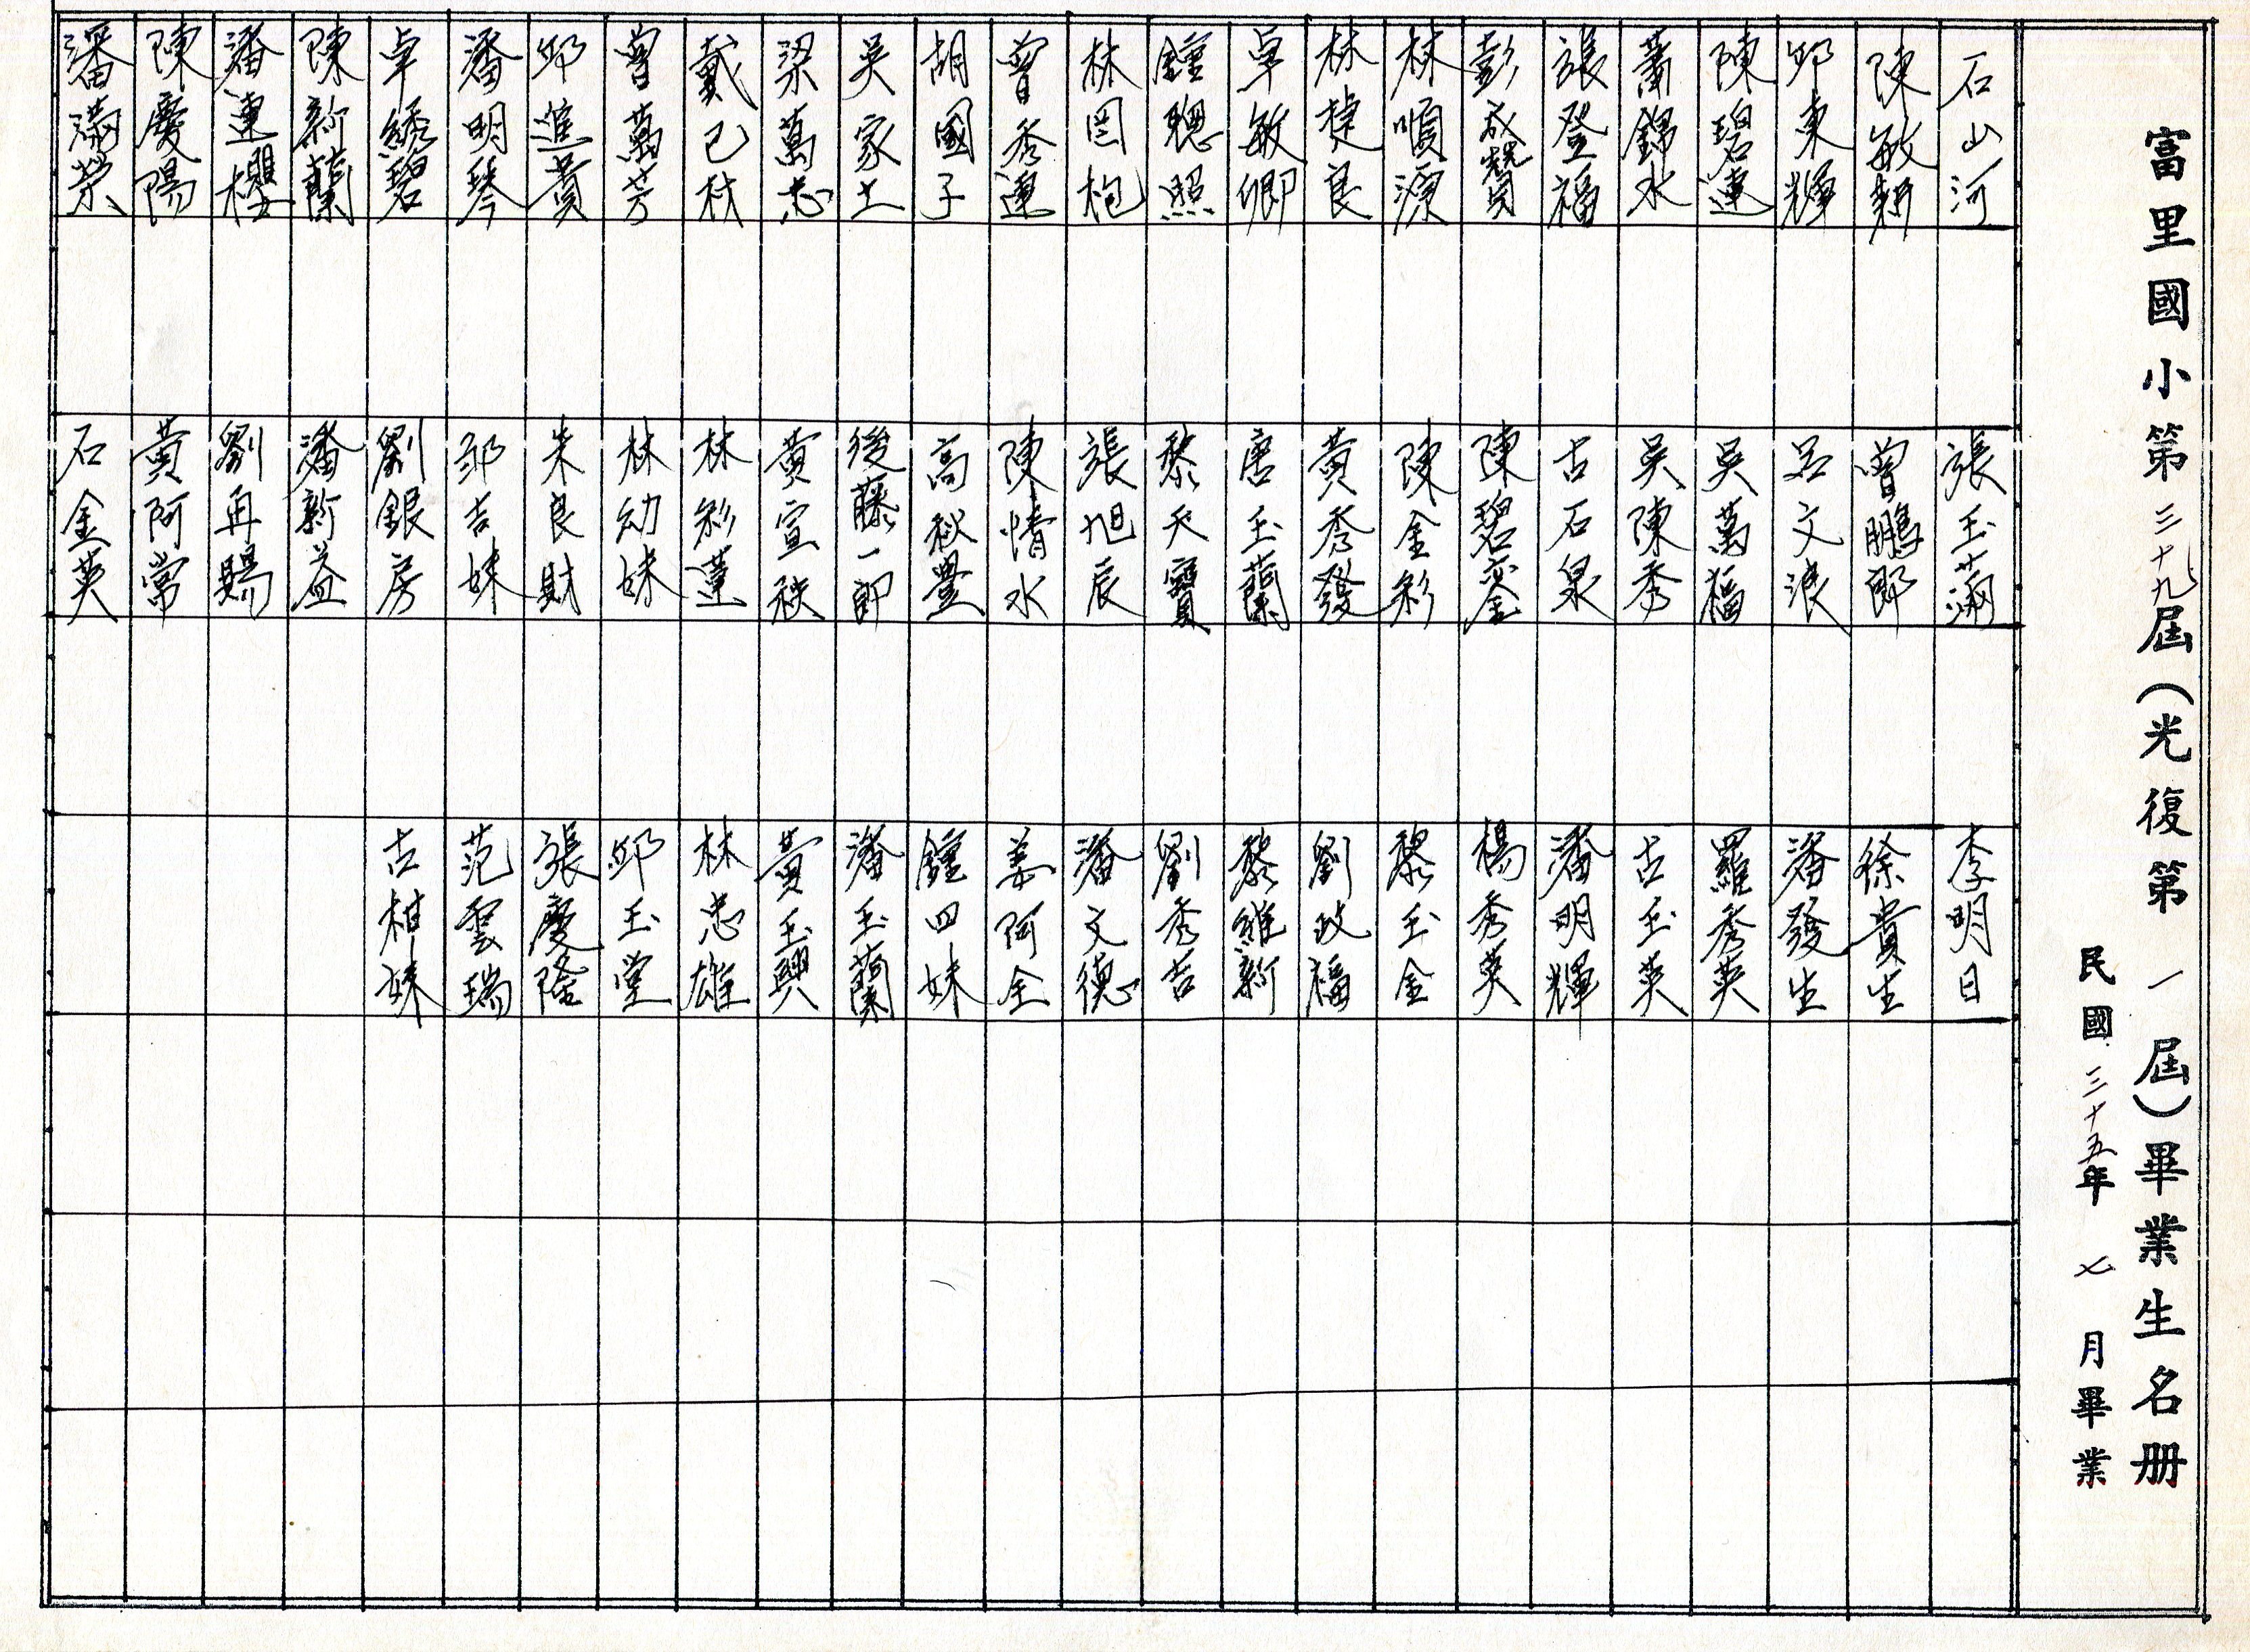 富里國小第三十九屆(光復第一屆)畢業生名册
民國三十五年七月畢業
石山河
陳敏耕
邱東輝
陳碧連
蕭錦水
張登福
彭成賢
林順源
林棟良
卓敏卿
鐘聰照
林図枹
曾秀連
胡國子
吳家土
梁萬志
戴己材
曾萬芳
邱進貴
潘明琴
卓綉碧
陳新蘭
潘連櫻
陳慶陽
潘滿榮
張玉滿
曾鵬郎
呂文浪
吳萬福
吳陳秀
古石泉
陳碧鑾
陳金彩
黃秀發
唐玉蘭
黎天寶
張旭辰
陳情水
高秋豊
後藤一郎
黃宣秩
林彩蓮
林幼妹
朱良財
邱吉妹
劉銀房
潘新益
劉再賜
黃阿常
石金英
李明日
徐貴生
潘發生
羅秀英
古玉英
潘明輝
楊秀英
黎玉金
劉政福
黎維新
劉秀吉
潘文德
姜阿全
鐘四妹
潘玉蘭
黃玉興
林忠雄
邱玉堂
張慶隆
范雲瑞
古柑妹